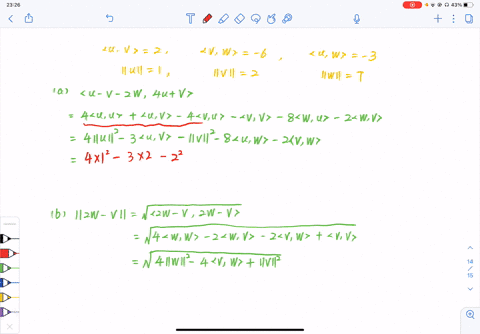 23:26
43%
<u-v>=2, <v,w>=-6, <u,w>=-3
||u||=1, ||v||=2 ||w||=7
(a) <u-v-2w, 4u+v>
= 4<u,u> + <u,v> - 4<v,u> - <v,v> - 8<w,u> - 2<w,v>
= 4||u||² - 3<u,v> - ||v||² - 8<u,w> - 2<v,w>
= 4×1² - 3×2 - 2²
(b) ||2w-v|| = √<2w-v, 2w-v>
= √4<w,w> - 2<w,v> - 2<v,w> + <v,v>
= √4||w||² - 4<v,w> + ||v||²
14
15